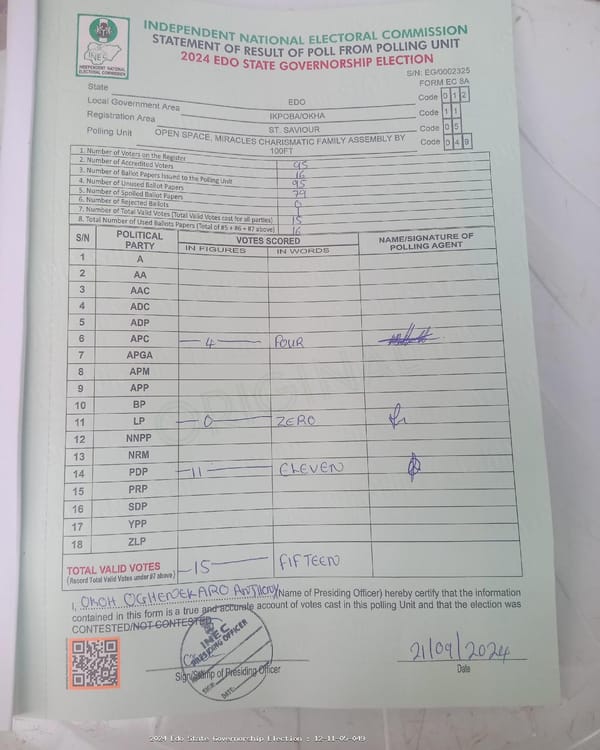 INDEPENDENT NATIONAL ELECTORAL COMMISSION
STATEMENT OF RESULT OF POLL FROM POLLING UNIT
2024 EDO STATE GOVERNORSHIP ELECTION
INEC
INDEPENDENT NATIONAL
ELECTORAL COMMISSION
S/N: EG/0002325
FORM EC 8A
State EDO Code 0 1 2
Local Government Area IKPOBA/OKHA Code 1 1
Registration Area ST. SAVIOUR Code 0 5
Polling Unit OPEN SPACE, MIRACLES CHARISMATIC FAMILY ASSEMBLY BY 100FT Code 0 4 9
1. Number of Voters on the Register 95
2. Number of Accredited Voters 16
3. Number of Ballot Papers Issued to the Polling Unit 95
4. Number of Unused Ballot Papers 79
5. Number of Spoiled Ballot Papers 0
6. Number of Rejected Ballots 1
7. Number of Total Valid Votes (Total Valid Votes cast for all parties) 15
8. Total Number of Used Ballots Papers (Total of #5 + #6 + #7 above) 16
S/N POLITICAL PARTY VOTES SCORED NAME/SIGNATURE OF POLLING AGENT
IN FIGURES IN WORDS
1 A
2 AA
3 AAC
4 ADC
5 ADP
6 APC 4 FOUR
7 APGA
8 APM
9 APP
10 BP
11 LP 0 ZERO
12 NNPP
13 NRM
14 PDP 11 ELEVEN
15 PRP
16 SDP
17 YPP
18 ZLP
ORIGINAL
TOTAL VALID VOTES 15 FIFTEEN
(Record Total Valid Votes under #7 above)
I, OKOH OGHENEKARO ANTHONY (Name of Presiding Officer) hereby certify that the information
contained in this form is a true and accurate account of votes cast in this polling Unit and that the election was
CONTESTED/NOT CONTESTED.
INEC
PRESIDING OFFICER
SIGN:
DATE:
Sign/Stamp of Presiding Officer
21/09/2024
Date
2024 Edo State Governorship Election : 12-11-05-049